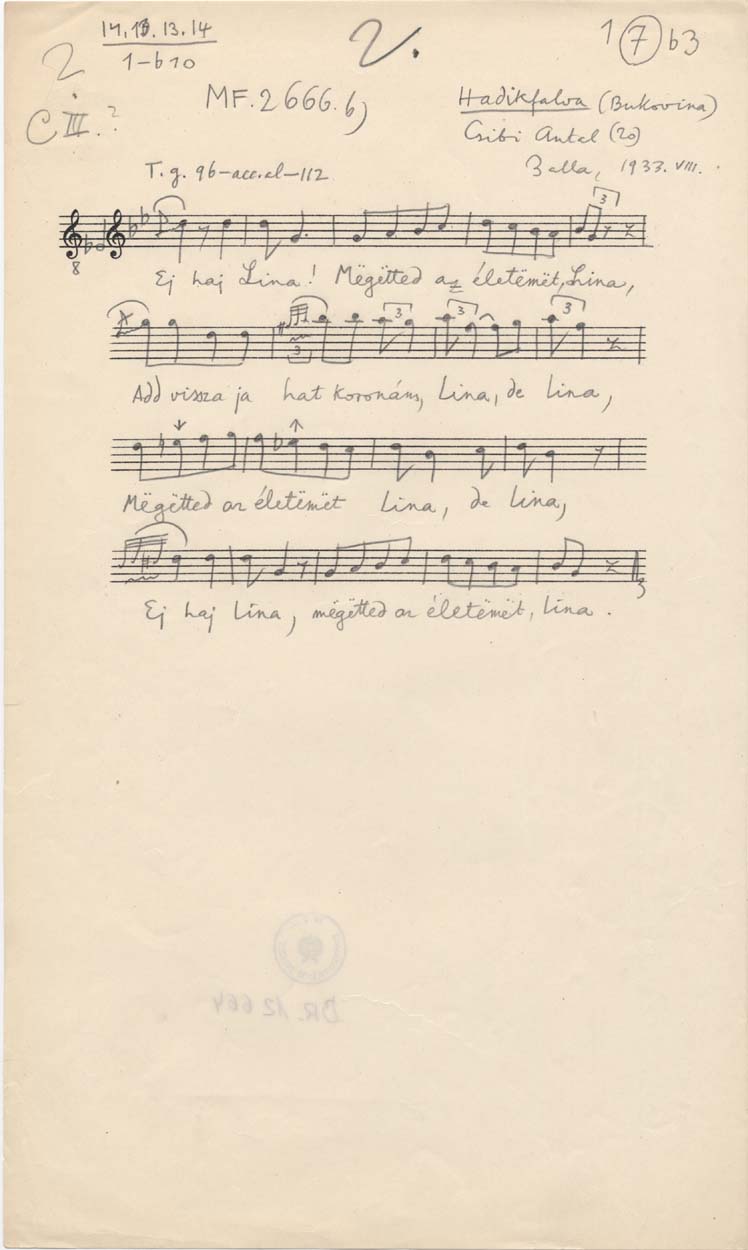 14, 13. 13. 14
1–b10
2.
1 7 b3
2
C III. ?
MF. 2666. b)
Hadikfalva (Bukovina)
Csibi Antal (20)
Balla, 1933. VIII.
T. g. 96–accel–112
8
3
Ej haj Lina! Mëgëtted az életëmët, Lina,
3 3 3 3
Add vissza ja hat koronám, Lina, de lina,
Mëgëtted az életëmët Lina, de lina,
Ej haj Lina, mëgëtted az életëmët, lina.
DR. 12664